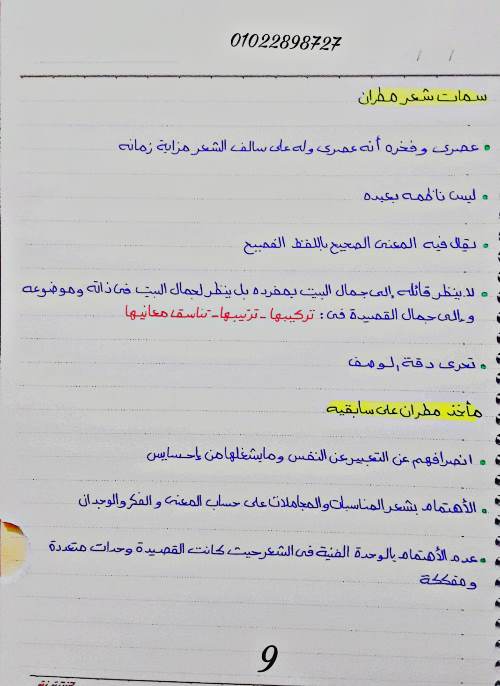 01022898727
/ /
سمات شعر مطران
عصرى وفخره أنه عصرى وله على سالف الشعر مزاية زمانه
ليس ناظمه بعبده
يقال فيه المعنى الصحيح باللفظ الفصيح
لا ينظر قائله إلى جمال البيت بمفرده بل ينظر لجمال البيت فى ذاته وموضوعه
وإلى جمال القصيدة فى: تركيبها - ترتيبها - تناسق معانيها
تحرى دقة الوصف
مأخذ مطران على سابقيه
انصرافهم عن التعبير عن النفس وما يشغلها من إحساس
الأهتمام بشعر المناسبات والمجاملات على حساب المعنى والفكر والوجدان
عدم الأهتمام بالوحدة الفنية فى الشعر حيث كانت القصيدة وحدات متعددة
ومفككة
9